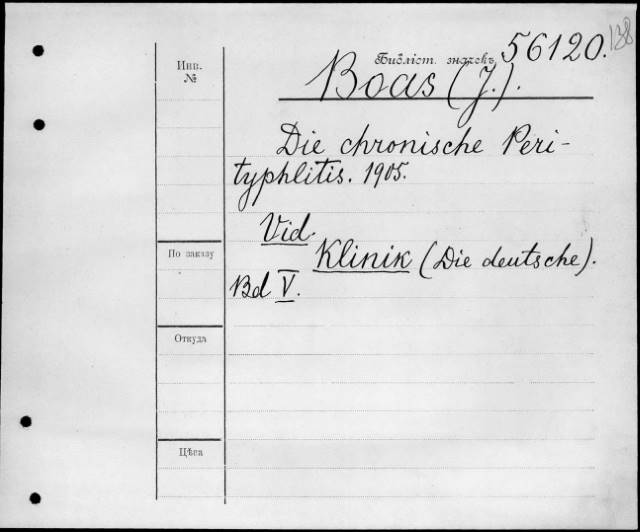 138
Инв.
№
Библіот. значекъ 56120.
Boas (J.).
Die chronische Peri-
typhlitis. 1905.
Vid.
Klinik (Die deutsche).
Bd V.
По заказу
Откуда
Цѣна